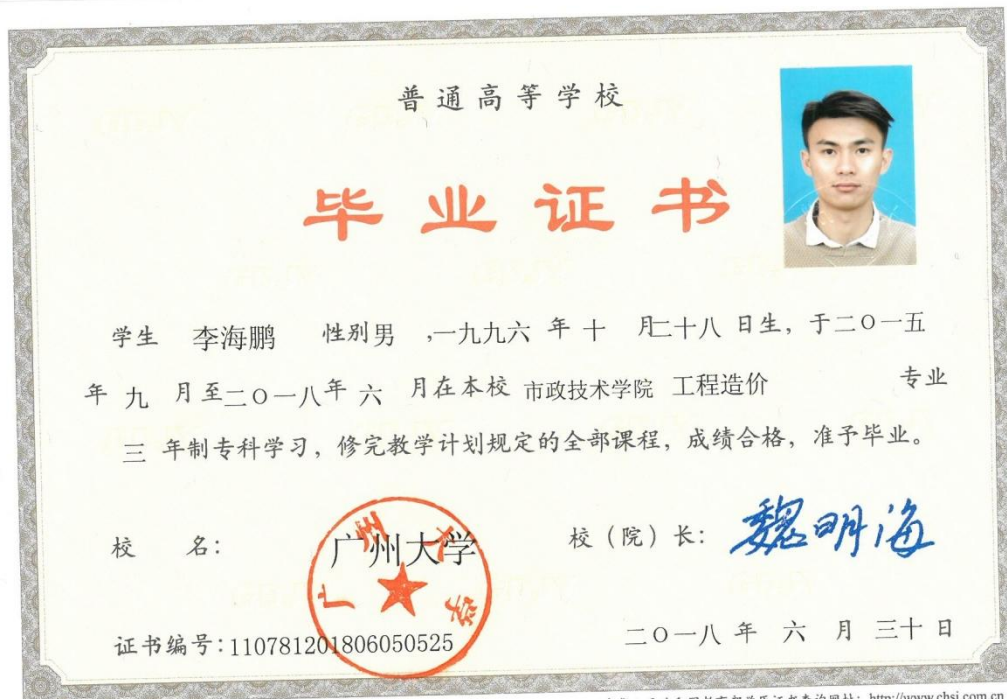 普通高等学校
毕业证书
学生 李海鹏 性别男 ,一九九六 年 十 月二十八 日生，于二〇一五
年 九 月至二〇一八年 六 月在本校 市政技术学院 工程造价 专业
三 年制专科学习，修完教学计划规定的全部课程，成绩合格，准予毕业。
校 名： 广州大学 校（院）长： 魏明海
广州大学
证书编号：110781201806050525 二〇一八 年 六 月 三十 日
查询网址：http://www.chsi.com.cn